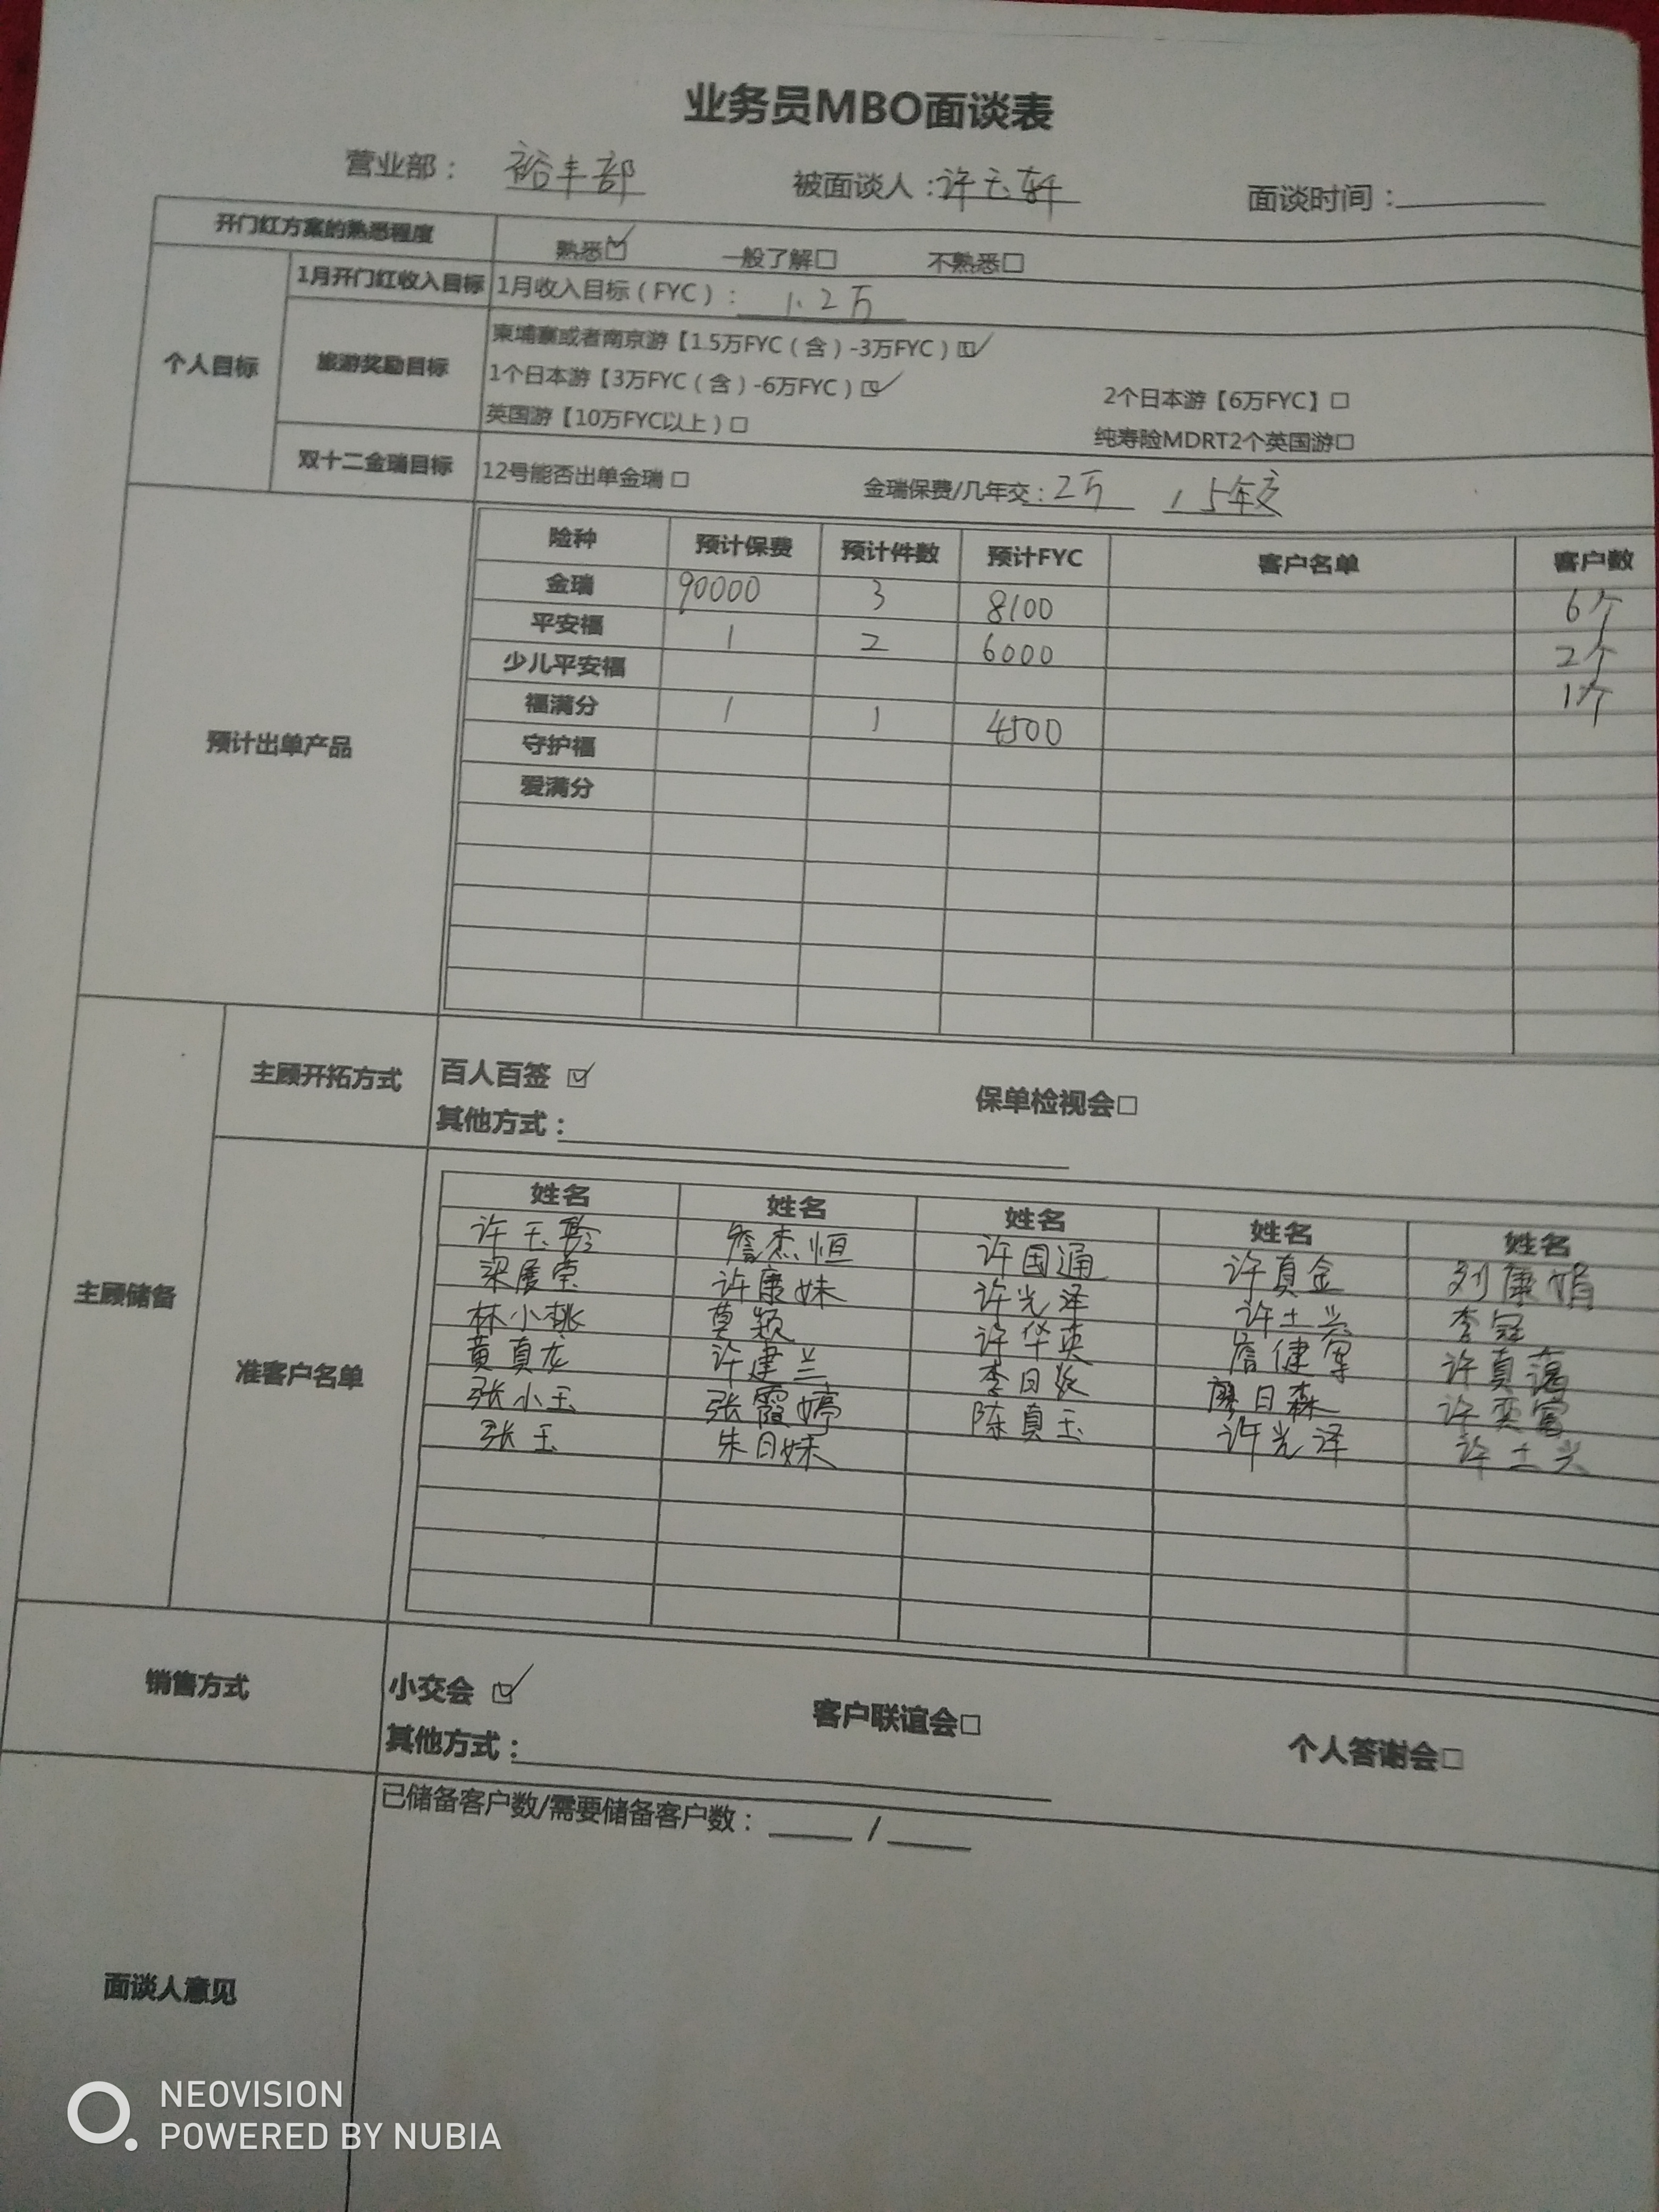 业务员MBO面谈表
营业部： 裕丰部 被面谈人：许玉轩 面谈时间：
开门红方案的熟悉程度 熟悉☑ 一般了解□ 不熟悉□
个人目标
1月开门红收入目标 1月收入目标（FYC）： 1.2万
旅游奖励目标
柬埔寨或者南京游【1.5万FYC（含）-3万FYC）☑
1个日本游【3万FYC（含）-6万FYC）☑ 2个日本游【6万FYC】□
英国游【10万FYC以上）□ 纯寿险MDRT2个英国游□
双十二金瑞目标 12号能否出单金瑞 □ 金瑞保费/几年交：2万 / 5年交
预计出单产品
险种 预计保费 预计件数 预计FYC 客户名单 客户数
金瑞 90000 3 8100 6个
平安福 1 2 6000 2个
少儿平安福 1个
福满分 1 1 4500
守护福
爱满分
主顾储备
主顾开拓方式 百人百签 ☑ 保单检视会□
其他方式：
准客户名单
姓名 姓名 姓名 姓名 姓名
许玉 詹杰恒 许国通 许真金 刘康娟
梁展荣 许康妹 许光泽 许士兴 李冠
林小桃 莫颖 许华英 詹健军 许真
黄真龙 许建兰 李日 廖日森 许奕富
张小玉 张霞婷 陈真玉 许光泽 许士兴
张玉 朱日妹
销售方式 小交会 ☑ 客户联谊会□ 个人答谢会□
其他方式：
已储备客户数/需要储备客户数： /
面谈人意见
NEOVISION
POWERED BY NUBIA